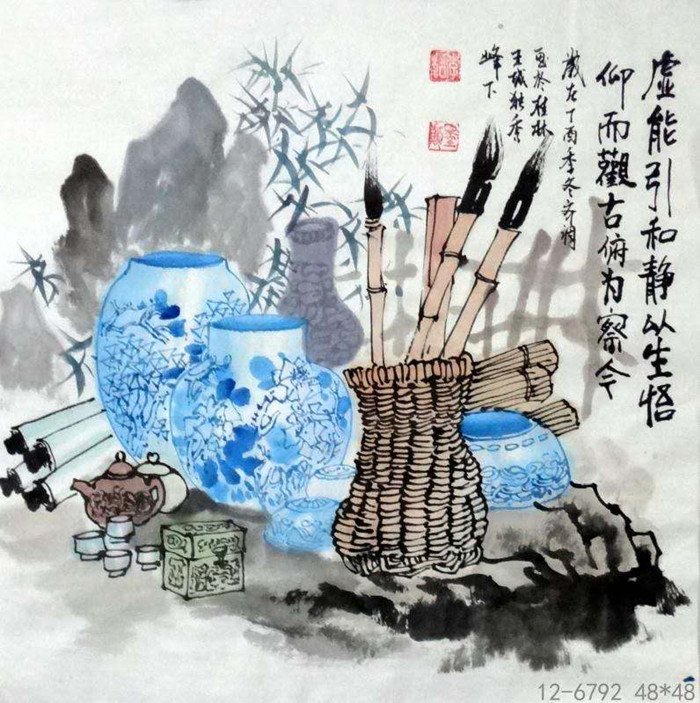 虚能引和静以生悟
仰而觀古俯为察今
歲在丁酉季冬
画於桂林
王城独秀
峰下
12-6792 48*48